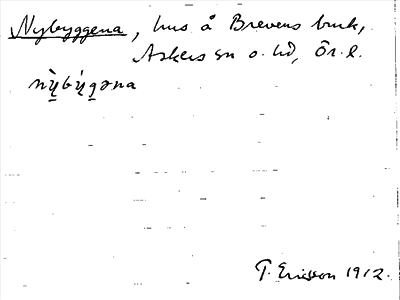 Nybyggena, hus å Brevens bruk,
Askers sn o. hd, Ör. l.
nỳ̠bý̠g̠əna
T. Ericsson 1912.